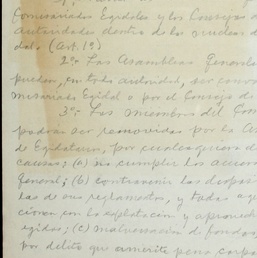 Comisariados Ejidales y los Consejos de
Autoridades dentro de los núcleos de
dado (Art. 1º)
2º: Las Asambleas Generales
pueden, en toda autoridad, ser convo
misariado Ejidal o por el Consejo de
3º: Los miembros del Com
podrán ser removidos por la As
de Ejidatarios, por cualesquiera de
causas: (a) no cumplir los acuer
General; (b) contravenir las dispos
las de sus reglamentos, y todas aq
cionen con la explotación y aprovech
ejidos; (c) malversación de fondos,
por delito que amerite pena corpo